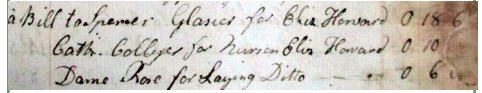 a Bill to Spencer Glasier for Eliz Howard 0 18 6
Cath. Collyer for Nursen Eliz Howard 0 10
Dame Rose for Laying Ditto 0 6